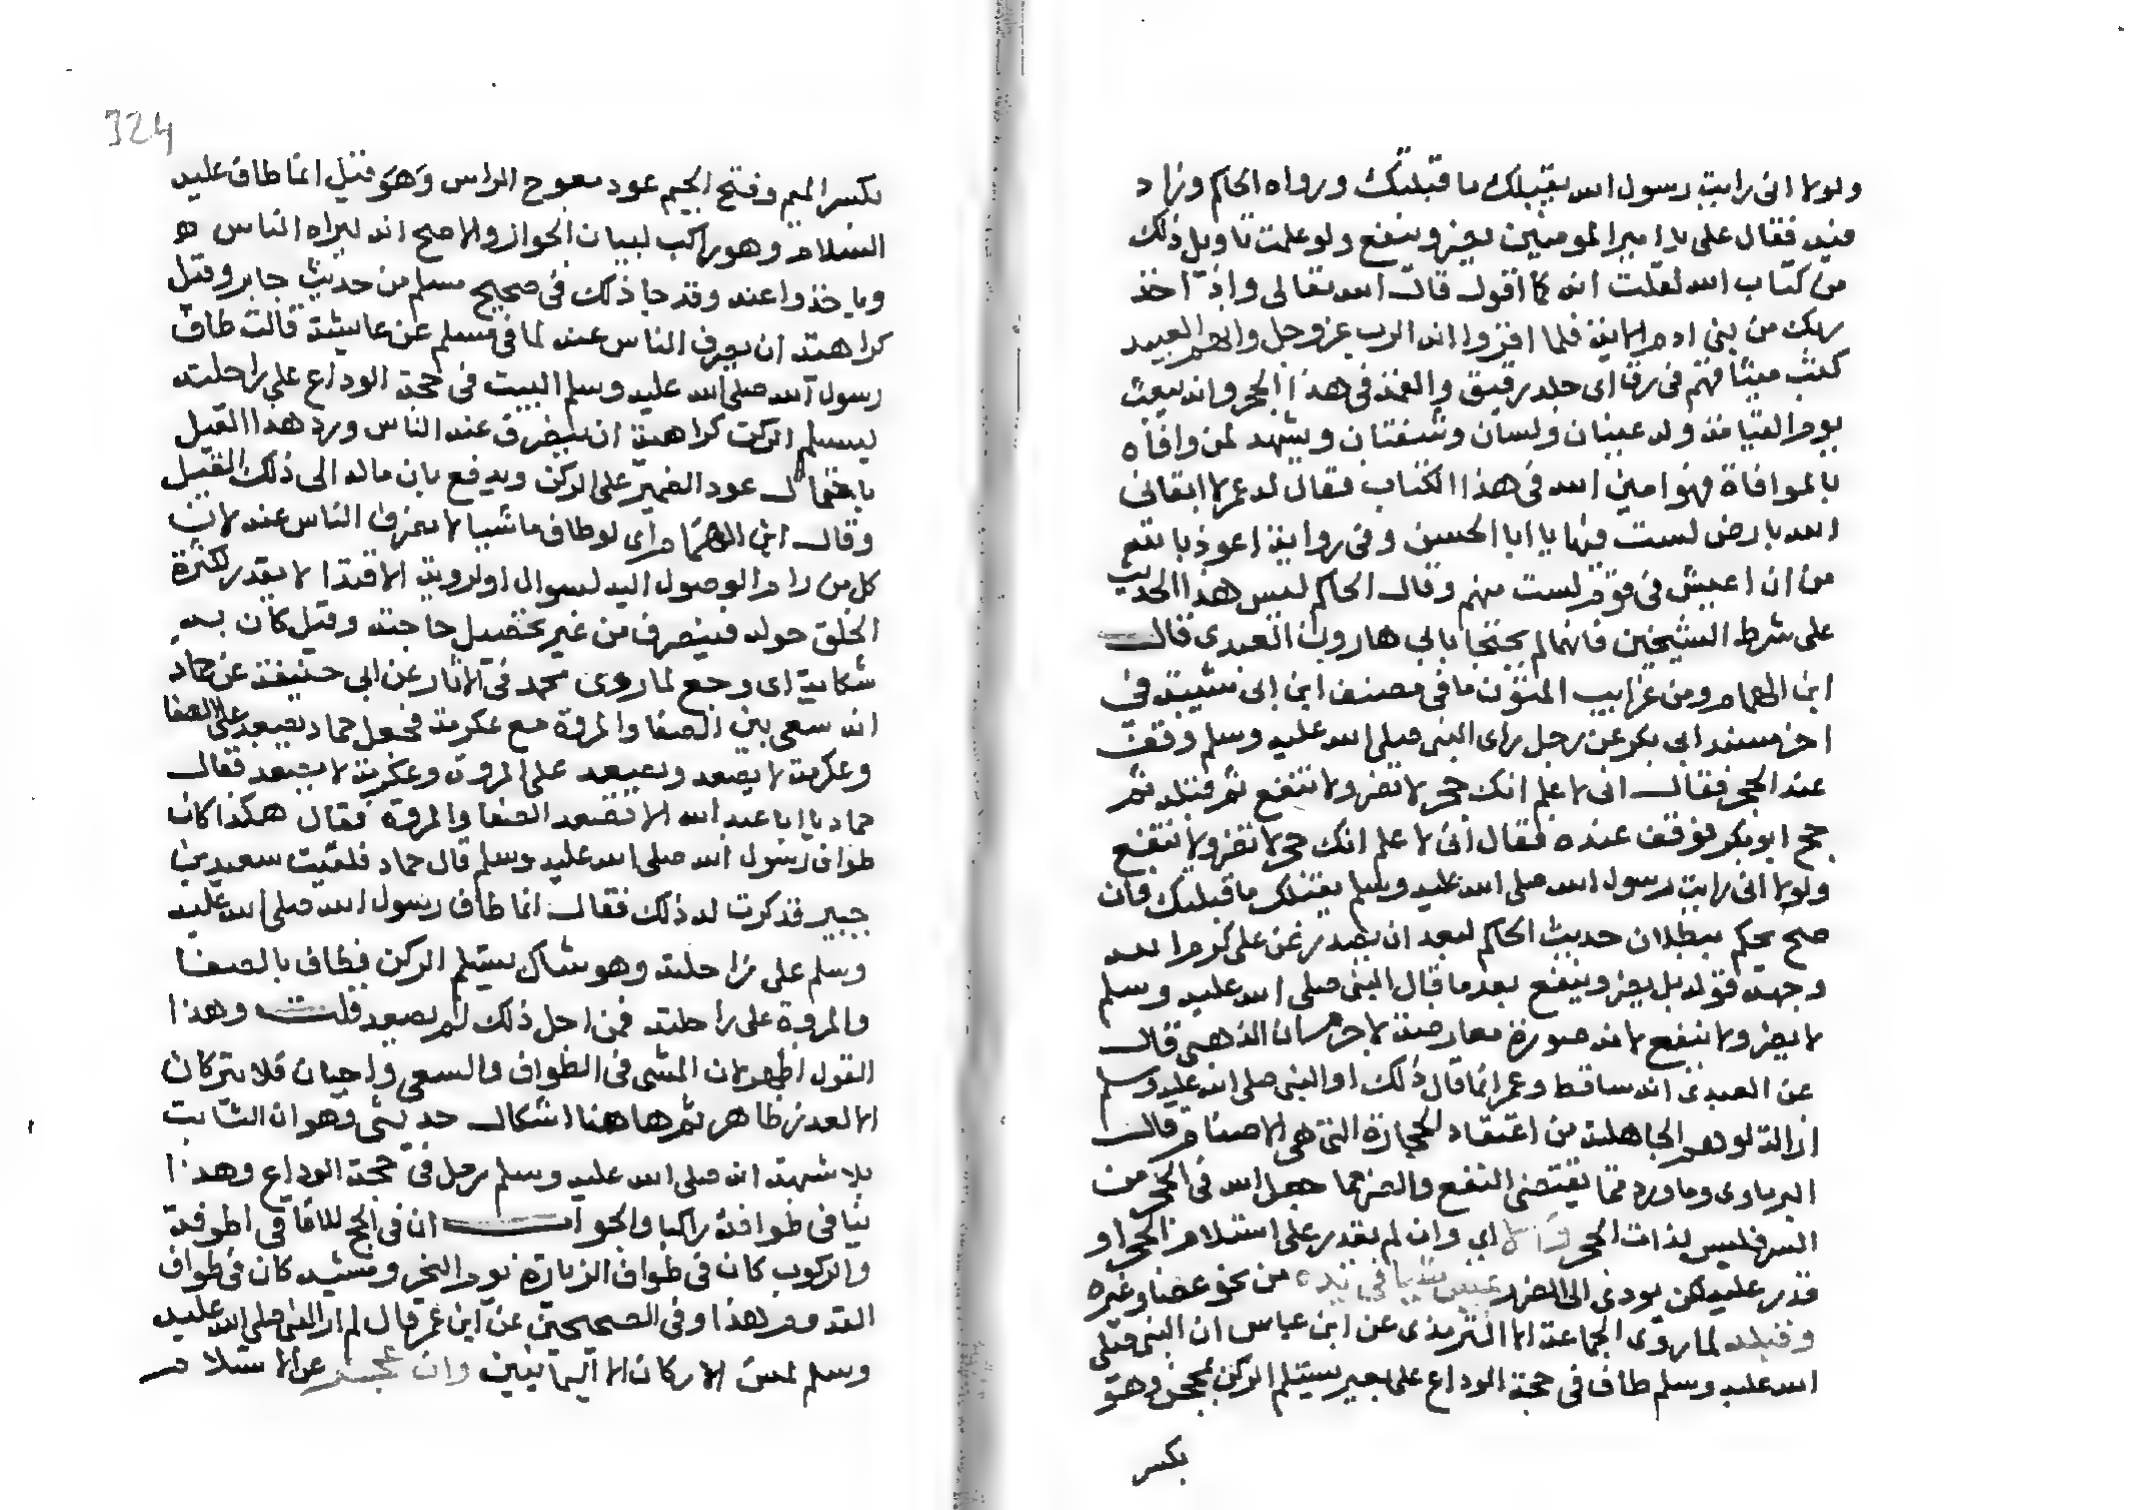 ولولا انى رايت رسول الله يقبلك ما قبلتك ورواه الحاكم وزاد
فيه فقال على يا امير المومنين يضر وينفع ولو علمت تاويل ذلك
من كتاب الله لقلت انه كما اقول قال الله تعالى واذ اخذ
ربك من بنى ادم الاية فلما اقروا انه الرب عز وجل وانهم العبيد
كتب ميثاقهم فى رق اى جلد رقيق والقمه فى هذا الحجر وانه يبعث
يوم القيامة وله عينان ولسان وشفتان ويشهد لمن وافاه
بالموافاة فهو امين الله فى هذا الكتاب فقال له عمر لا ابقانى
الله بارض لست فيها يا ابا الحسن وفى رواية اعوذ بالله
من ان اعيش فى قوم لست منهم وقال الحاكم ليس هذا الحديث
على شرط الشيخين فانهما لم يحتجا بابى هارون العبدى قال
ابن الهمام ومن غرايب المتون ما فى مصنف ابن ابى شيبة فى
اخر مسند ابى بكر عن رجل راى النبى صلى الله عليه وسلم وقف
عند الحجر فقال انى لاعلم انك حجر لا تضر ولا تنفع ثم قبله ثم
حج ابو بكر فوقف عنده فقال انى لا علم انك حجر لا تضر ولا تنفع
ولولا انى رايت رسول الله صلى الله عليه وسلم يقبلك ما قبلتك فان
صح يحكم ببطلان حديث الحاكم لبعد ان يصدر عن على كرم الله
وجهه قوله بل يضر وينفع بعد ما قال النبى صلى الله عليه وسلم
لا يضر ولا ينفع لانه صورة معارضة لا جرم ان الذهبى قال
عن العبدى انه ساقط وعمر انما قال ذلك او النبى صلى الله عليه وسلم
ازالة لوهم الجاهلية من اعتقاد الحجارة التى هى الاصنام قال
البرماوى وما ورد مما يقتضى النفع والضر مما جعل الله فى الحجر من
السر فليس لذات الحجر والا اى وان لم يقدر على استلام الحجر او
قدر عليه لكن يودى الى الضرر يمس شيا فى يده من نحو عصا وغيره
وقبله لما روى الجماعة الا الترمذى عن ابن عباس ان النبى صلى
الله عليه وسلم طاف فى حجة الوداع على بعير يستلم الركن بمحجن وهو
بكسر
324
بكسر الميم وفتح الجيم عود معوج الراس وهو قيل انما طاف عليه
السلام وهو راكب لبيان الجواز والاصح انه ليراه الناس
وياخذوا عنه وقد جا ذلك فى صحيح مسلم من حديث جابر وقيل
كراهة ان يصرف الناس عنه لما فى مسلم عن عايشة قالت طاف
رسول الله صلى الله عليه وسلم البيت فى حجة الوداع على راحلته
ليستلم الركن كراهة ان يصرف عنه الناس ورد هذا القيل
باحتمال عود الضمير على الركن ويدفع بان ماله الى ذلك القيل
وقال ابن الهمام اى لو طاف ماشيا لانصرف الناس عنه لان
كل من رام الوصول اليه لسوال او لروية الاقتدا لا يقدر لكثرة
الخلق حوله فينصرف من غير تحصيل حاجته وقيل كان به
شكاية اى وجع لما روى محمد فى الاثار عن ابى حنيفة عن حماد
انه سعى بين الصفا والمروة مع عكرمة فجعل حماد يصعد على الصفا
وعكرمة لا يصعد ويصعد على المروة وعكرمة لا يصعد فقال
حماد يا ابا عبد الله الا تصعد الصفا والمروة فقال هكذا كان
طواف رسول الله صلى الله عليه وسلم قال حماد فلقيت سعيد بن
جبير فذكرت له ذلك فقال انما طاف رسول الله صلى الله عليه
وسلم على راحلته وهو شاك يستلم الركن فطاف بالصفا
والمروة على راحلته فمن اجل ذلك لم يصعد قلت وهذا
القول اظهر لان المشى فى الطواف والسعى واجبان فلا يتركان
الا لعذر ظاهر ثم هاهنا اشكال حديثى وهو ان الثابت
بلا شبهة انه صلى الله عليه وسلم رمل فى حجة الوداع وهذا
ينافى طوافه راكبا والجواب ان فى الحج للافاقى اطوفة
والركوب كان فى طواف الزيارة يوم النحر ومشيه كان فى طواف
القدوم هذا وفى الصحيحين عن ابن عمر قال لم ار النبى صلى الله عليه
وسلم يمس الاركان الا اليمانيين وان عجز عن الاستلام